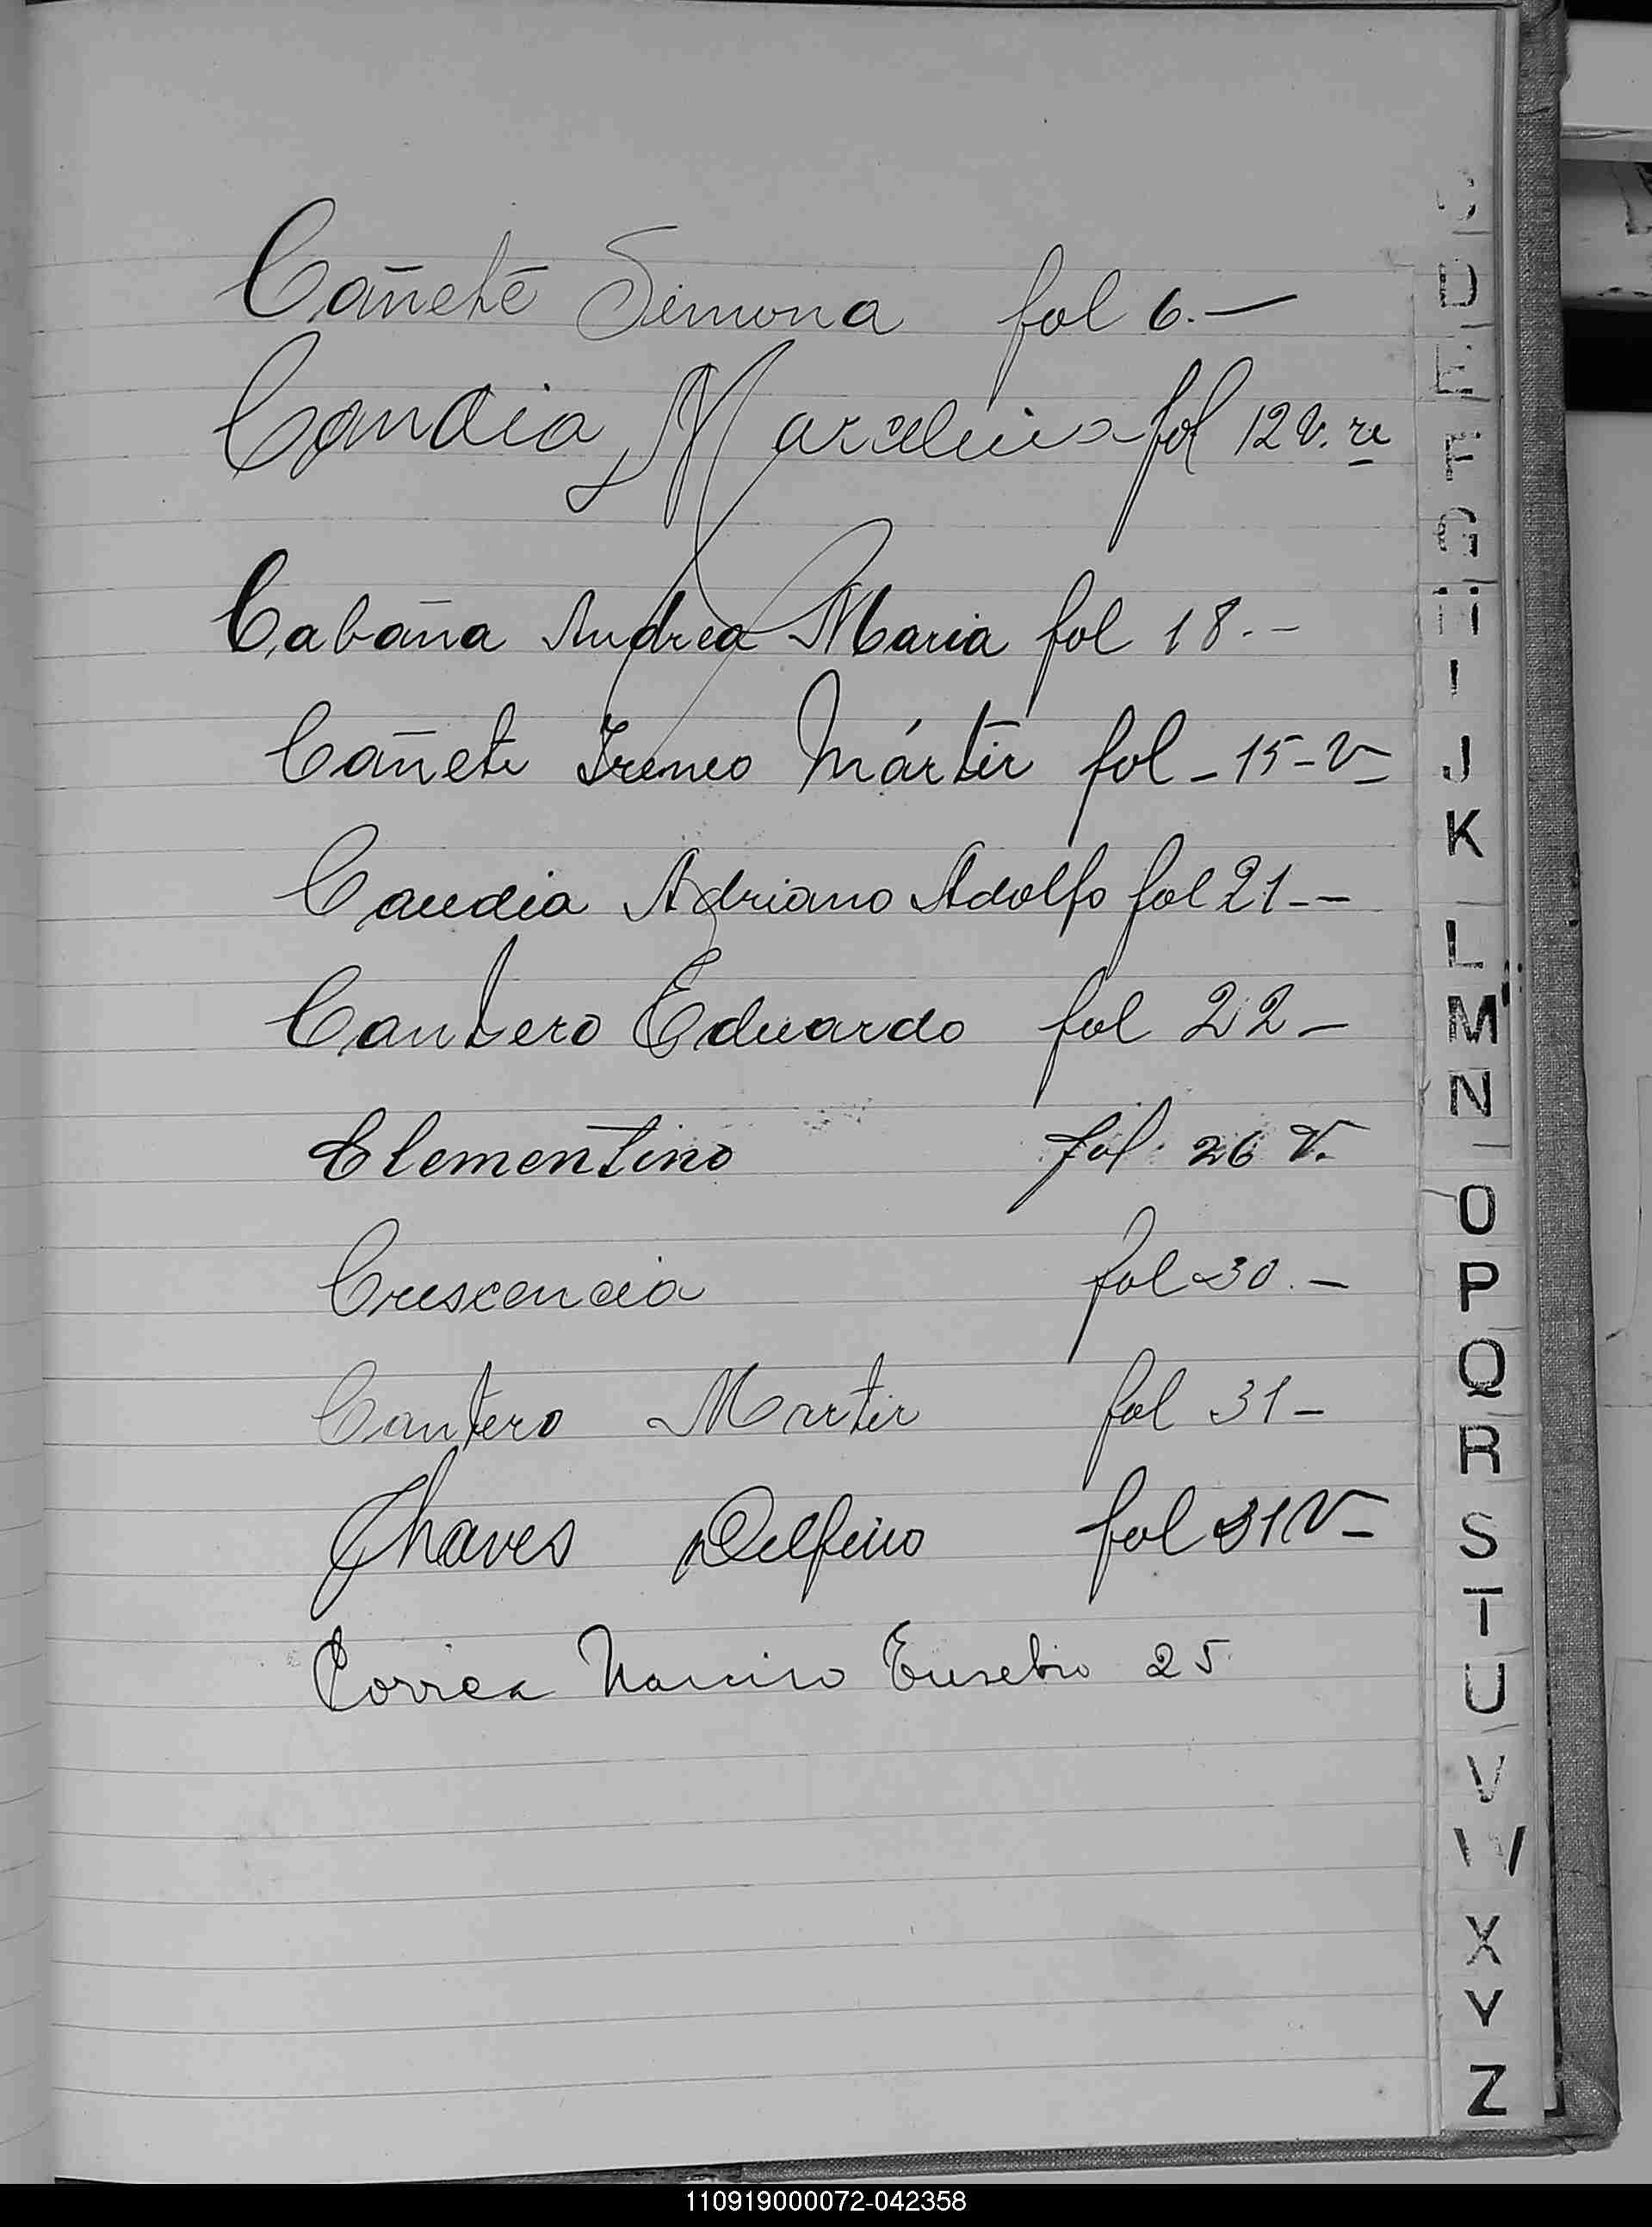 Cañete Simona fol 6.—
Candia Marcelina fol 12 v. re
Cabaña Andrea Maria fol 18.-
Cañete Ireneo Mártir fol - 15 - V
Candia Adriano Adolfo fol 21 - -
Cantero Eduardo fol 22 -
Clementino fol 26 V.
Crescencia fol 30. -
Cantero Martir fol 31 -
Chaves Delfino fol 31 V -
Correa Narciso Eusebio 25
D
E
F
G
H
I
J
K
L
M
N
O
P
Q
R
S
T
U
V
W
X
Y
Z
110919000072-042358